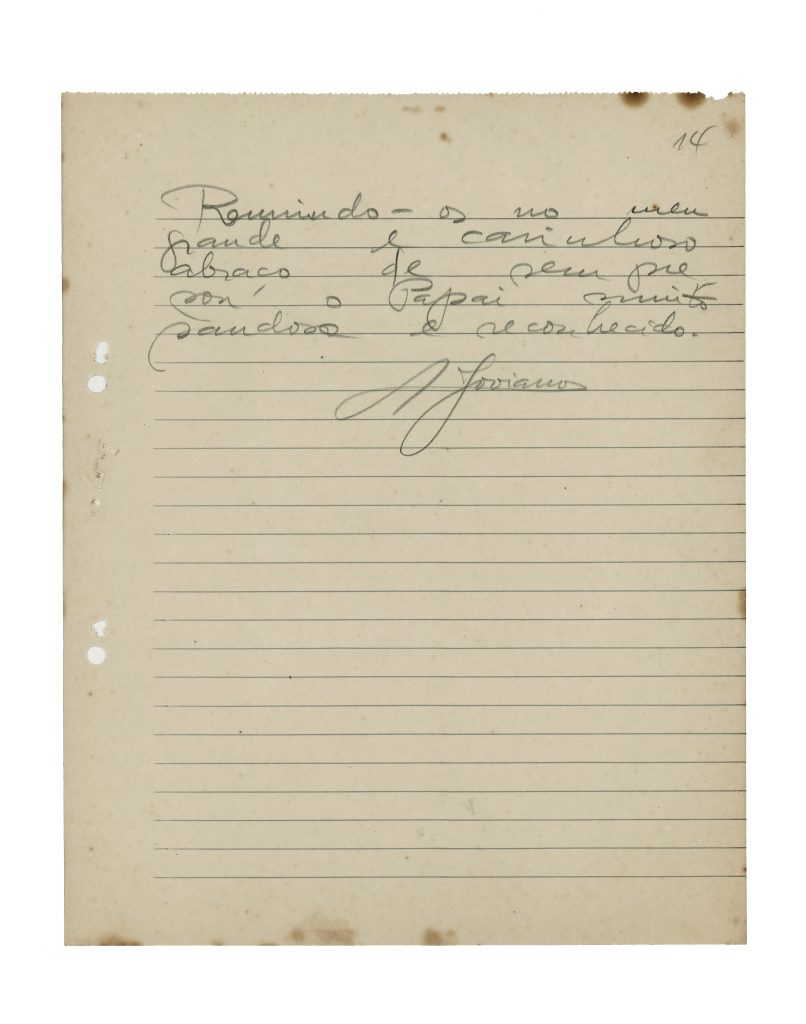 14
Reunindo-os no meu
grande e carinhoso
abraço de sempre
sou, o Papai muito
saudoso e reconhecido.
A Joviano